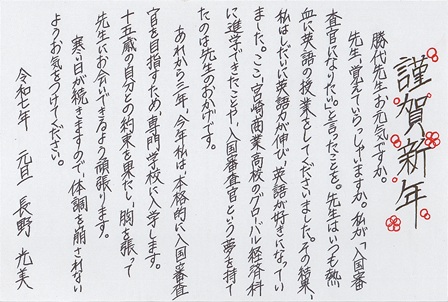 謹賀新年
勝代先生、お元気ですか。
先生、覚えていらっしゃいますか。私が「入国審
査官になりたい。」と言ったことを。先生はいつも熱
血に英語の授業をしてくださいました。その結果
私はしだいに英語力が伸び、英語が好きになってい
ました。ここ、宮崎商業高校のグローバル経済科
に進学できたことや、入国審査官という夢を持て
たのは先生のおかげです。
あれから三年、今年私は、本格的に入国審査
官を目指すため、専門学校に入学します。
十五歳の自分との約束を果たし、胸を張って
先生にお会いできるよう頑張ります。
寒い日が続きますので体調を崩されない
ようお気をつけてください。
令和七年 元旦 長野 光美